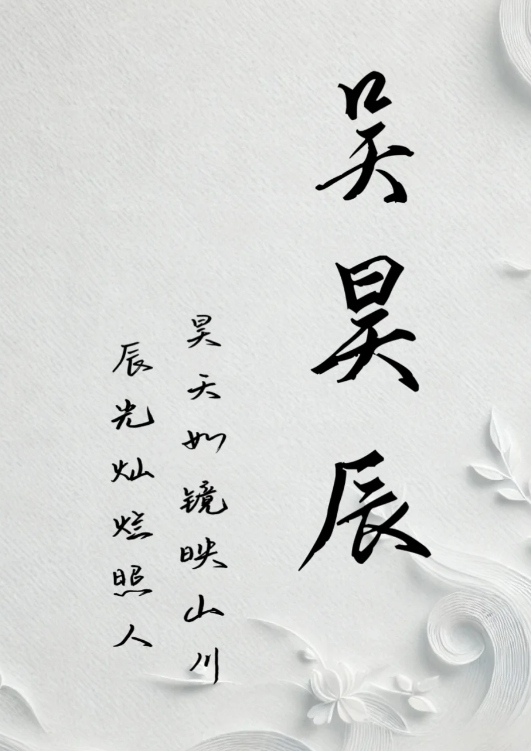 吴昊辰
昊天如镜映山川
辰光灿烂照人